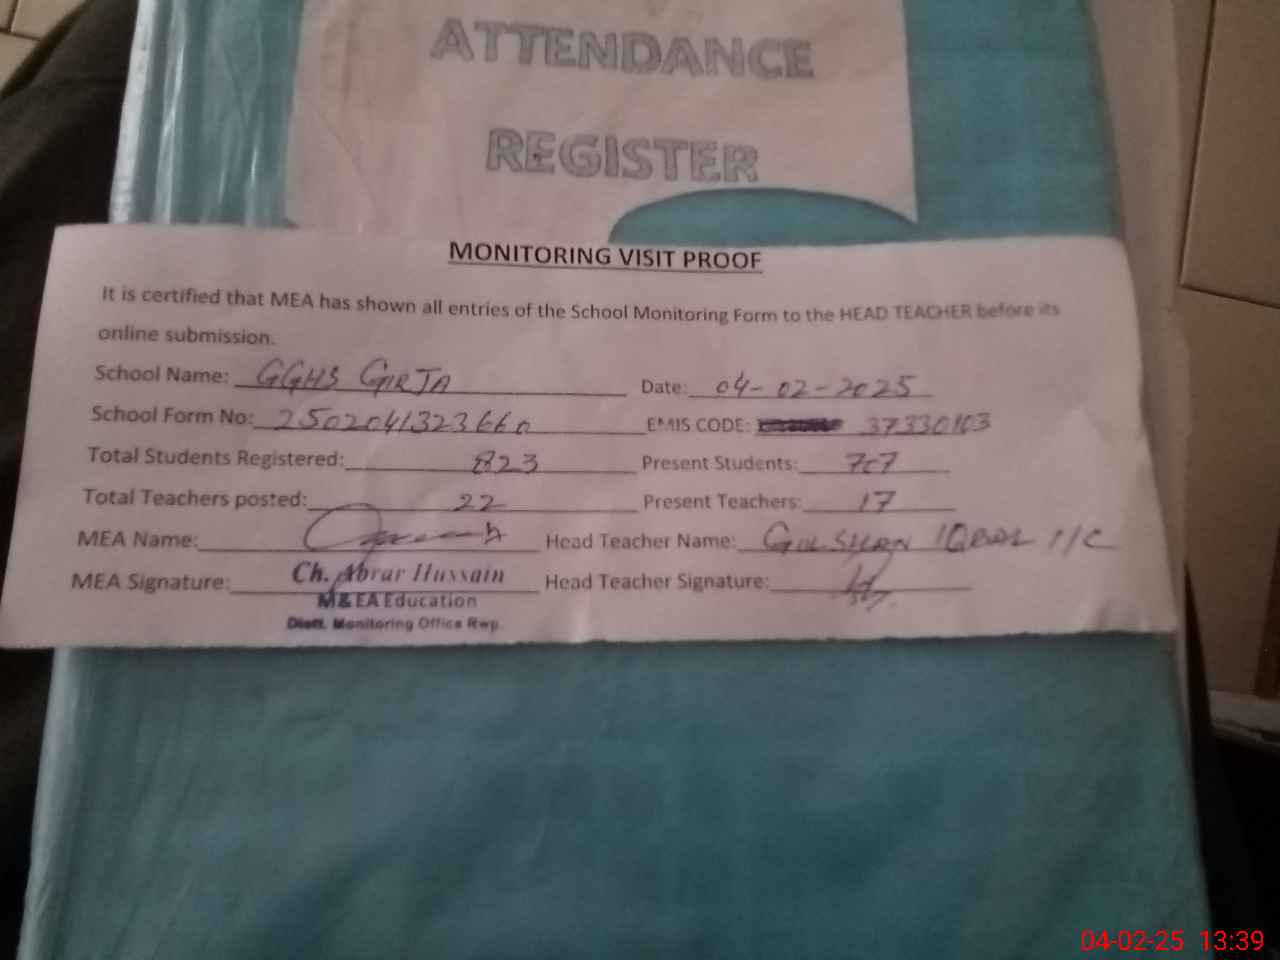 ATTENDANCE
REGISTER
MONITORING VISIT PROOF
It is certified that MEA has shown all entries of the School Monitoring Form to the HEAD TEACHER before its
online submission.
School Name: GGHS GIRJA Date: 04-02-2025
School Form No: 2502041323660 EMIS CODE: 37330103
Total Students Registered: 823 Present Students: 707
Total Teachers posted: 22 Present Teachers: 17
MEA Name: Head Teacher Name: GULSHAN IQBAL I/C
MEA Signature: Ch. Abrar Hussain Head Teacher Signature:
M&EA Education
Distt. Monitoring Office Rwp
04-02-25 13:39